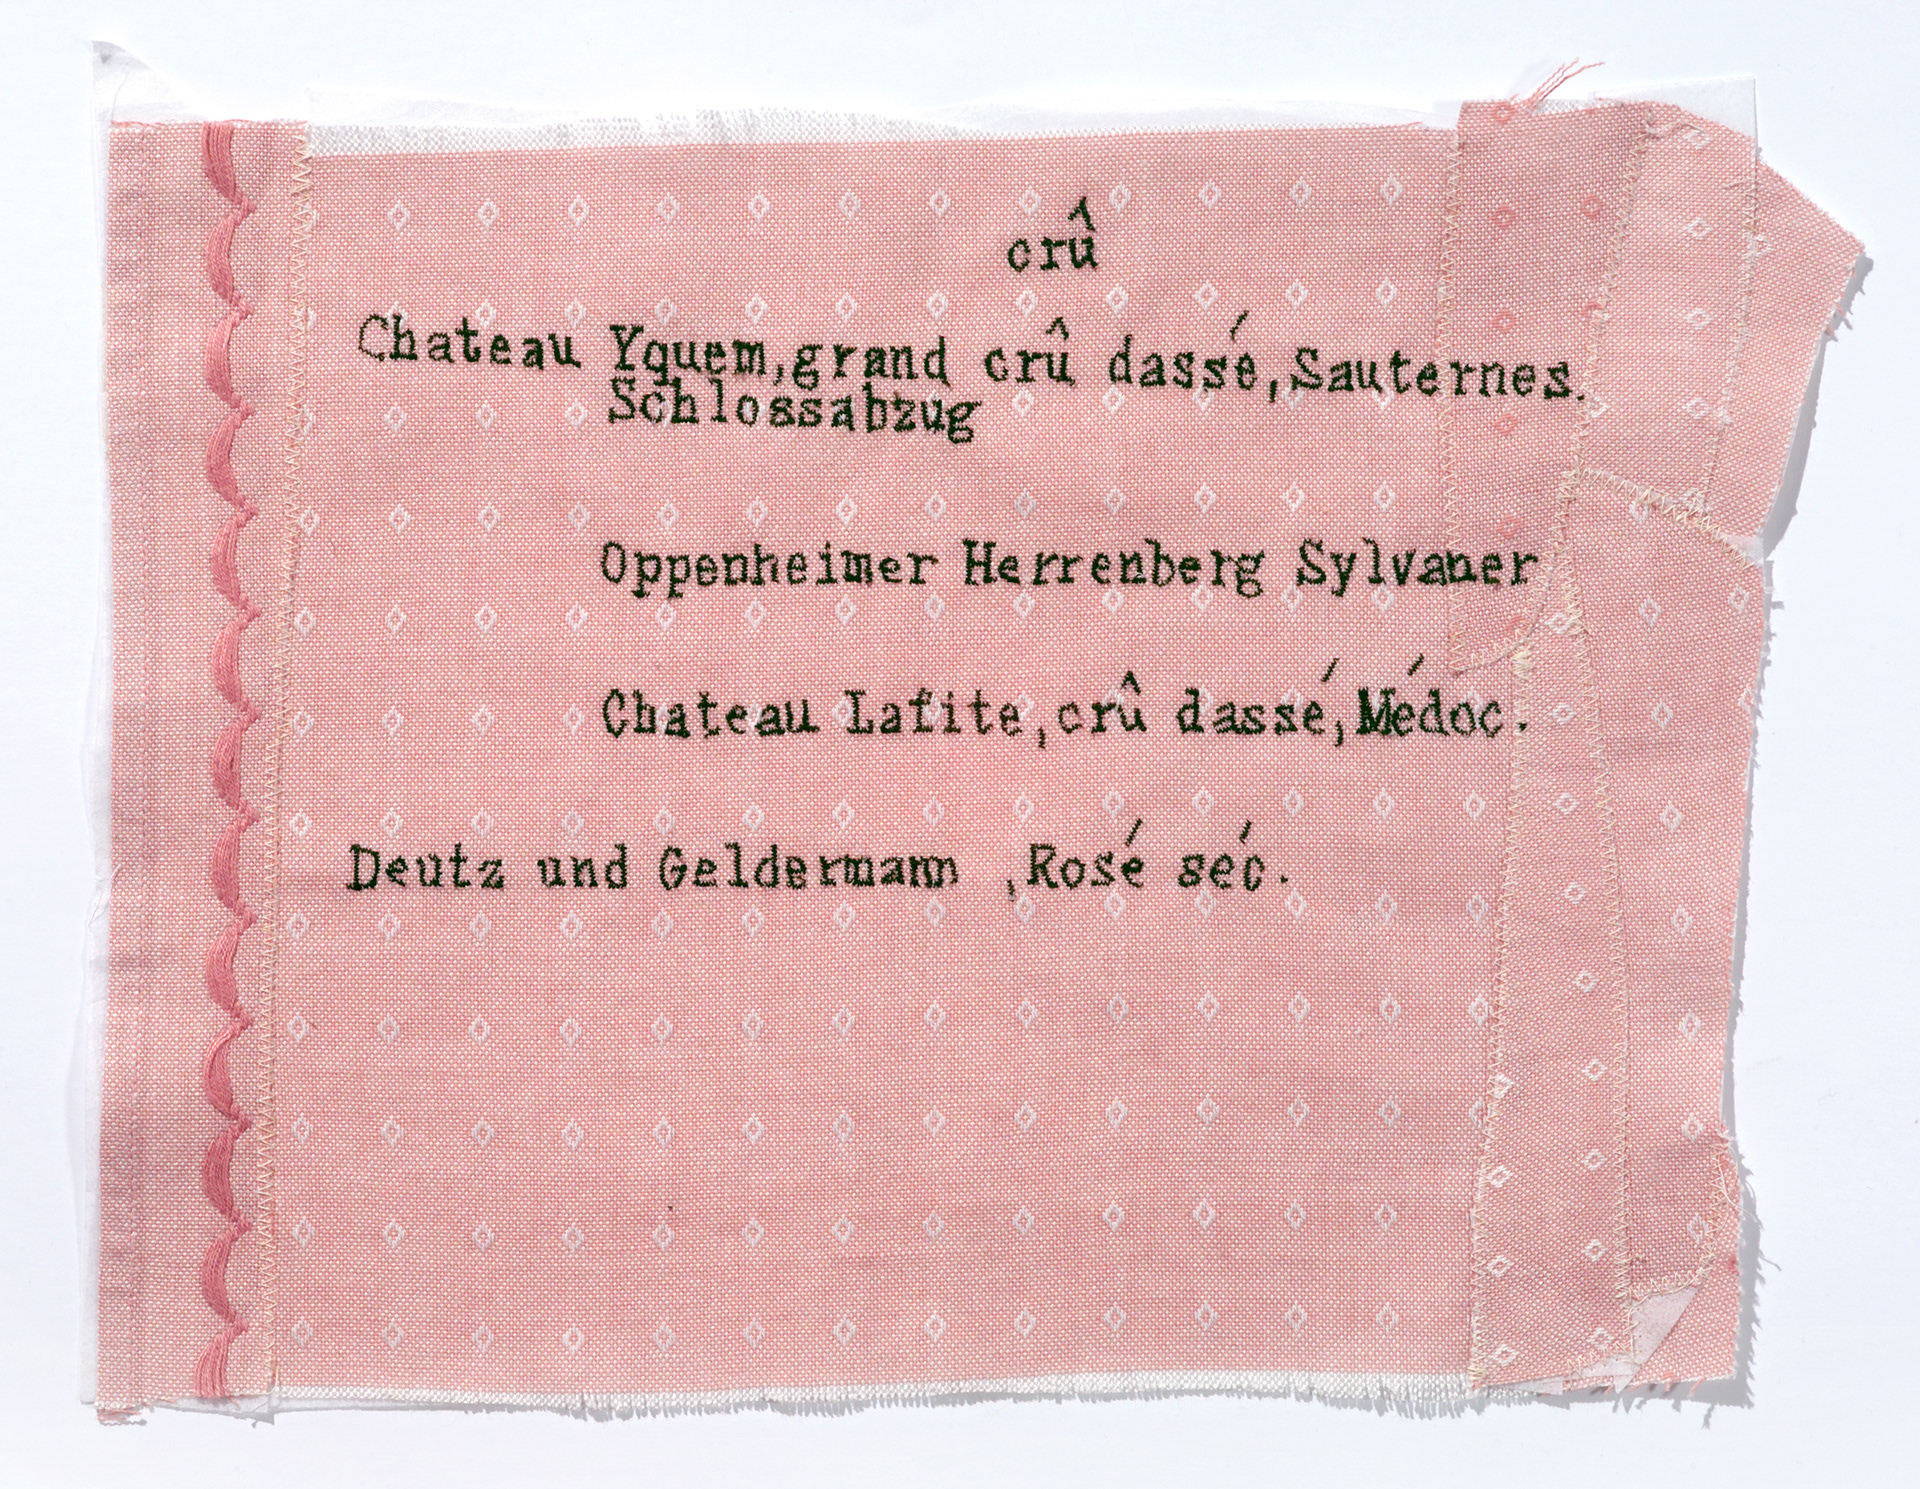 crû
Chateau Yquem,grand crû dassé,Sauternes.
Schlossabzug
Oppenheimer Herrenberg Sylvaner
Chateau Lafite,crû dassé,Médoc.
Deutz und Geldermann ,Rosé séc.